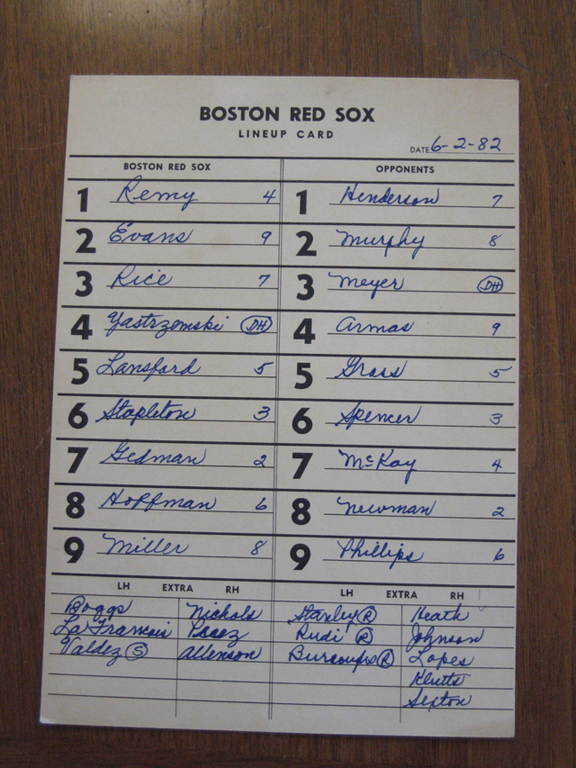 BOSTON RED SOX
LINEUP CARD
DATE 6-2-82
BOSTON RED SOX OPPONENTS
1 Remy 4 1 Henderson 7
2 Evans 9 2 Murphy 8
3 Rice 7 3 Meyer DH
4 Yastrzemski DH 4 Armas 9
5 Lansford 5 5 Gross 5
6 Stapleton 3 6 Spencer 3
7 Gedman 2 7 McKay 4
8 Hoffman 6 8 Newman 2
9 Miller 8 9 Phillips 6
LH EXTRA RH LH EXTRA RH
Boggs Nichols Stanley R Heath
La Francois Perez Rudi R Johnson
Valdez S Allenson Burroughs R Lopes
Klutts
Sexton